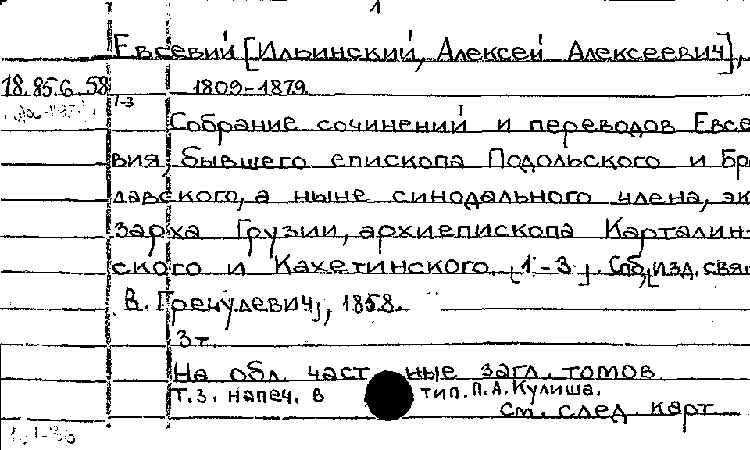 1
Евсевий [Ильинский, Алексей Алексеевич],
18.85.6.58 1809-1879.
1-3
Собрание сочинений и переводов Евсе-
вия, бывшего епископа Подольского и Бра-
лавского, а ныне синодального члена, эк-
зарха Грузии, архиепископа Карталин-
ского и Кахетинского. [1-3]. Спб, [изд. свящ.
В. Гречулевич], 1858.
3 т.
На обл. част ные загл. томов
Т.3. напеч. в тип. П.А. Кулиша.
См. след. карт